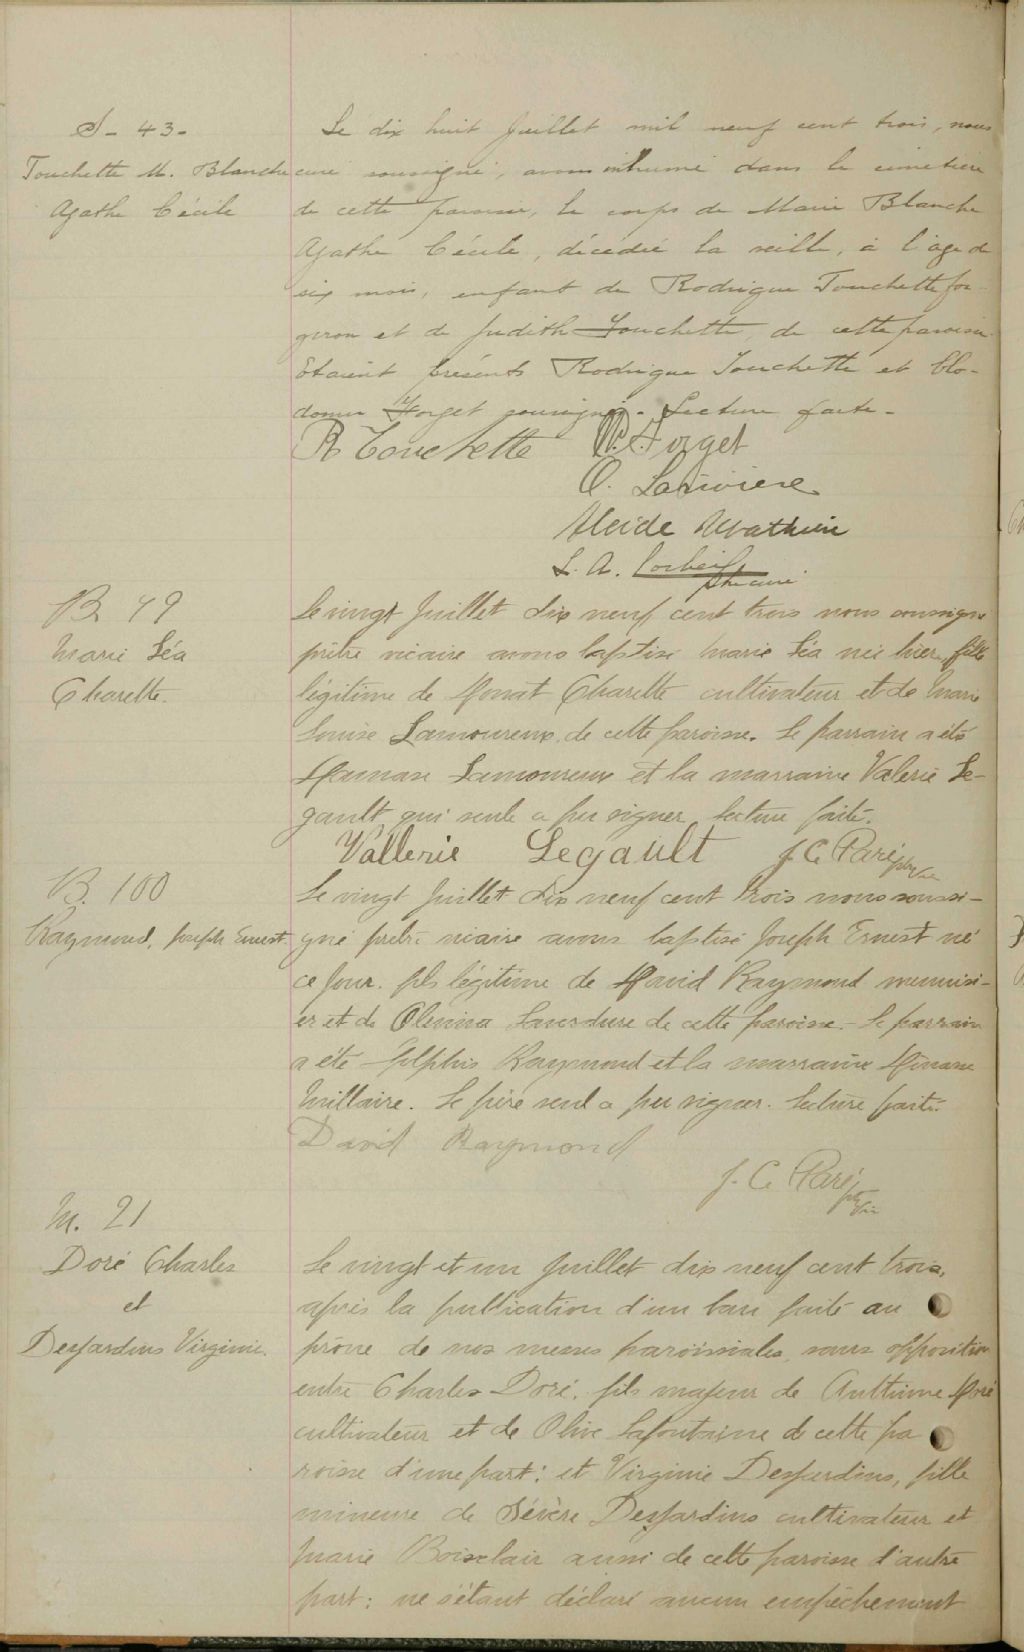 S- 43-
Touchette M. Blanche
Agathe Cécile
Le dix huit Juillet mil neuf cent trois, nous
curé soussigné, avons inhumé dans le cimetière
de cette paroisse, le corps de Marie Blanche
Agathe Cécile, décédée la veille, à l'âge de
six mois, enfant de Rodrigue Touchette for-
geron et de Judith Touchette, de cette paroisse.
Etaient présents Rodrigue Touchette et Clo-
domir Forget soussignés. Lecture faite.
R Touchette
Forget
O. Lariviere
Alcide Mathieu
L. A. Corbeil
ptre curé
B. 49
Marie Léa
Charette.
Le vingt Juillet dix neuf cent trois nous soussigné
prêtre vicaire avons baptisé Marie Léa née hier fille
légitime de Donat Charette cultivateur et de Marie
Louise Lamoureux de cette paroisse. Le parrain a été
Damase Lamoureux et la marraine Valerie Le-
gault qui seule a pu signer lecture faite.
Vallerie Legault J. C. Paré ptre vic
B. 100
Raymond, Joseph Ernest
Le vingt Juillet dix neuf cent trois nous soussi-
gné prêtre vicaire avons baptisé Joseph Ernest né
ce jour. fils légitime de David Raymond menuisi-
er et de de cette paroisse. - Le parrain
a été Raymond et la marraine
Millaire. Le père seul a pu signer. lecture faite.
David Raymond
J. C. Paré ptre vic
M. 21
Doré Charles
et
Desjardins Virginie.
Le vingt et un Juillet dix neuf cent trois,
après la publication d'un ban faite au
prône de nos messes paroissiales, sans opposition
entre Charles Doré, fils majeur de Doré
cultivateur et de Olive Lafontaine de cette pa
roisse d'une part: et Virginie Desjardins, fille
mineure de Sévère Desjardins cultivateur et
Marie Boisclair aussi de cette paroisse d'autre
part: ne s'étant déclaré aucun empêchement